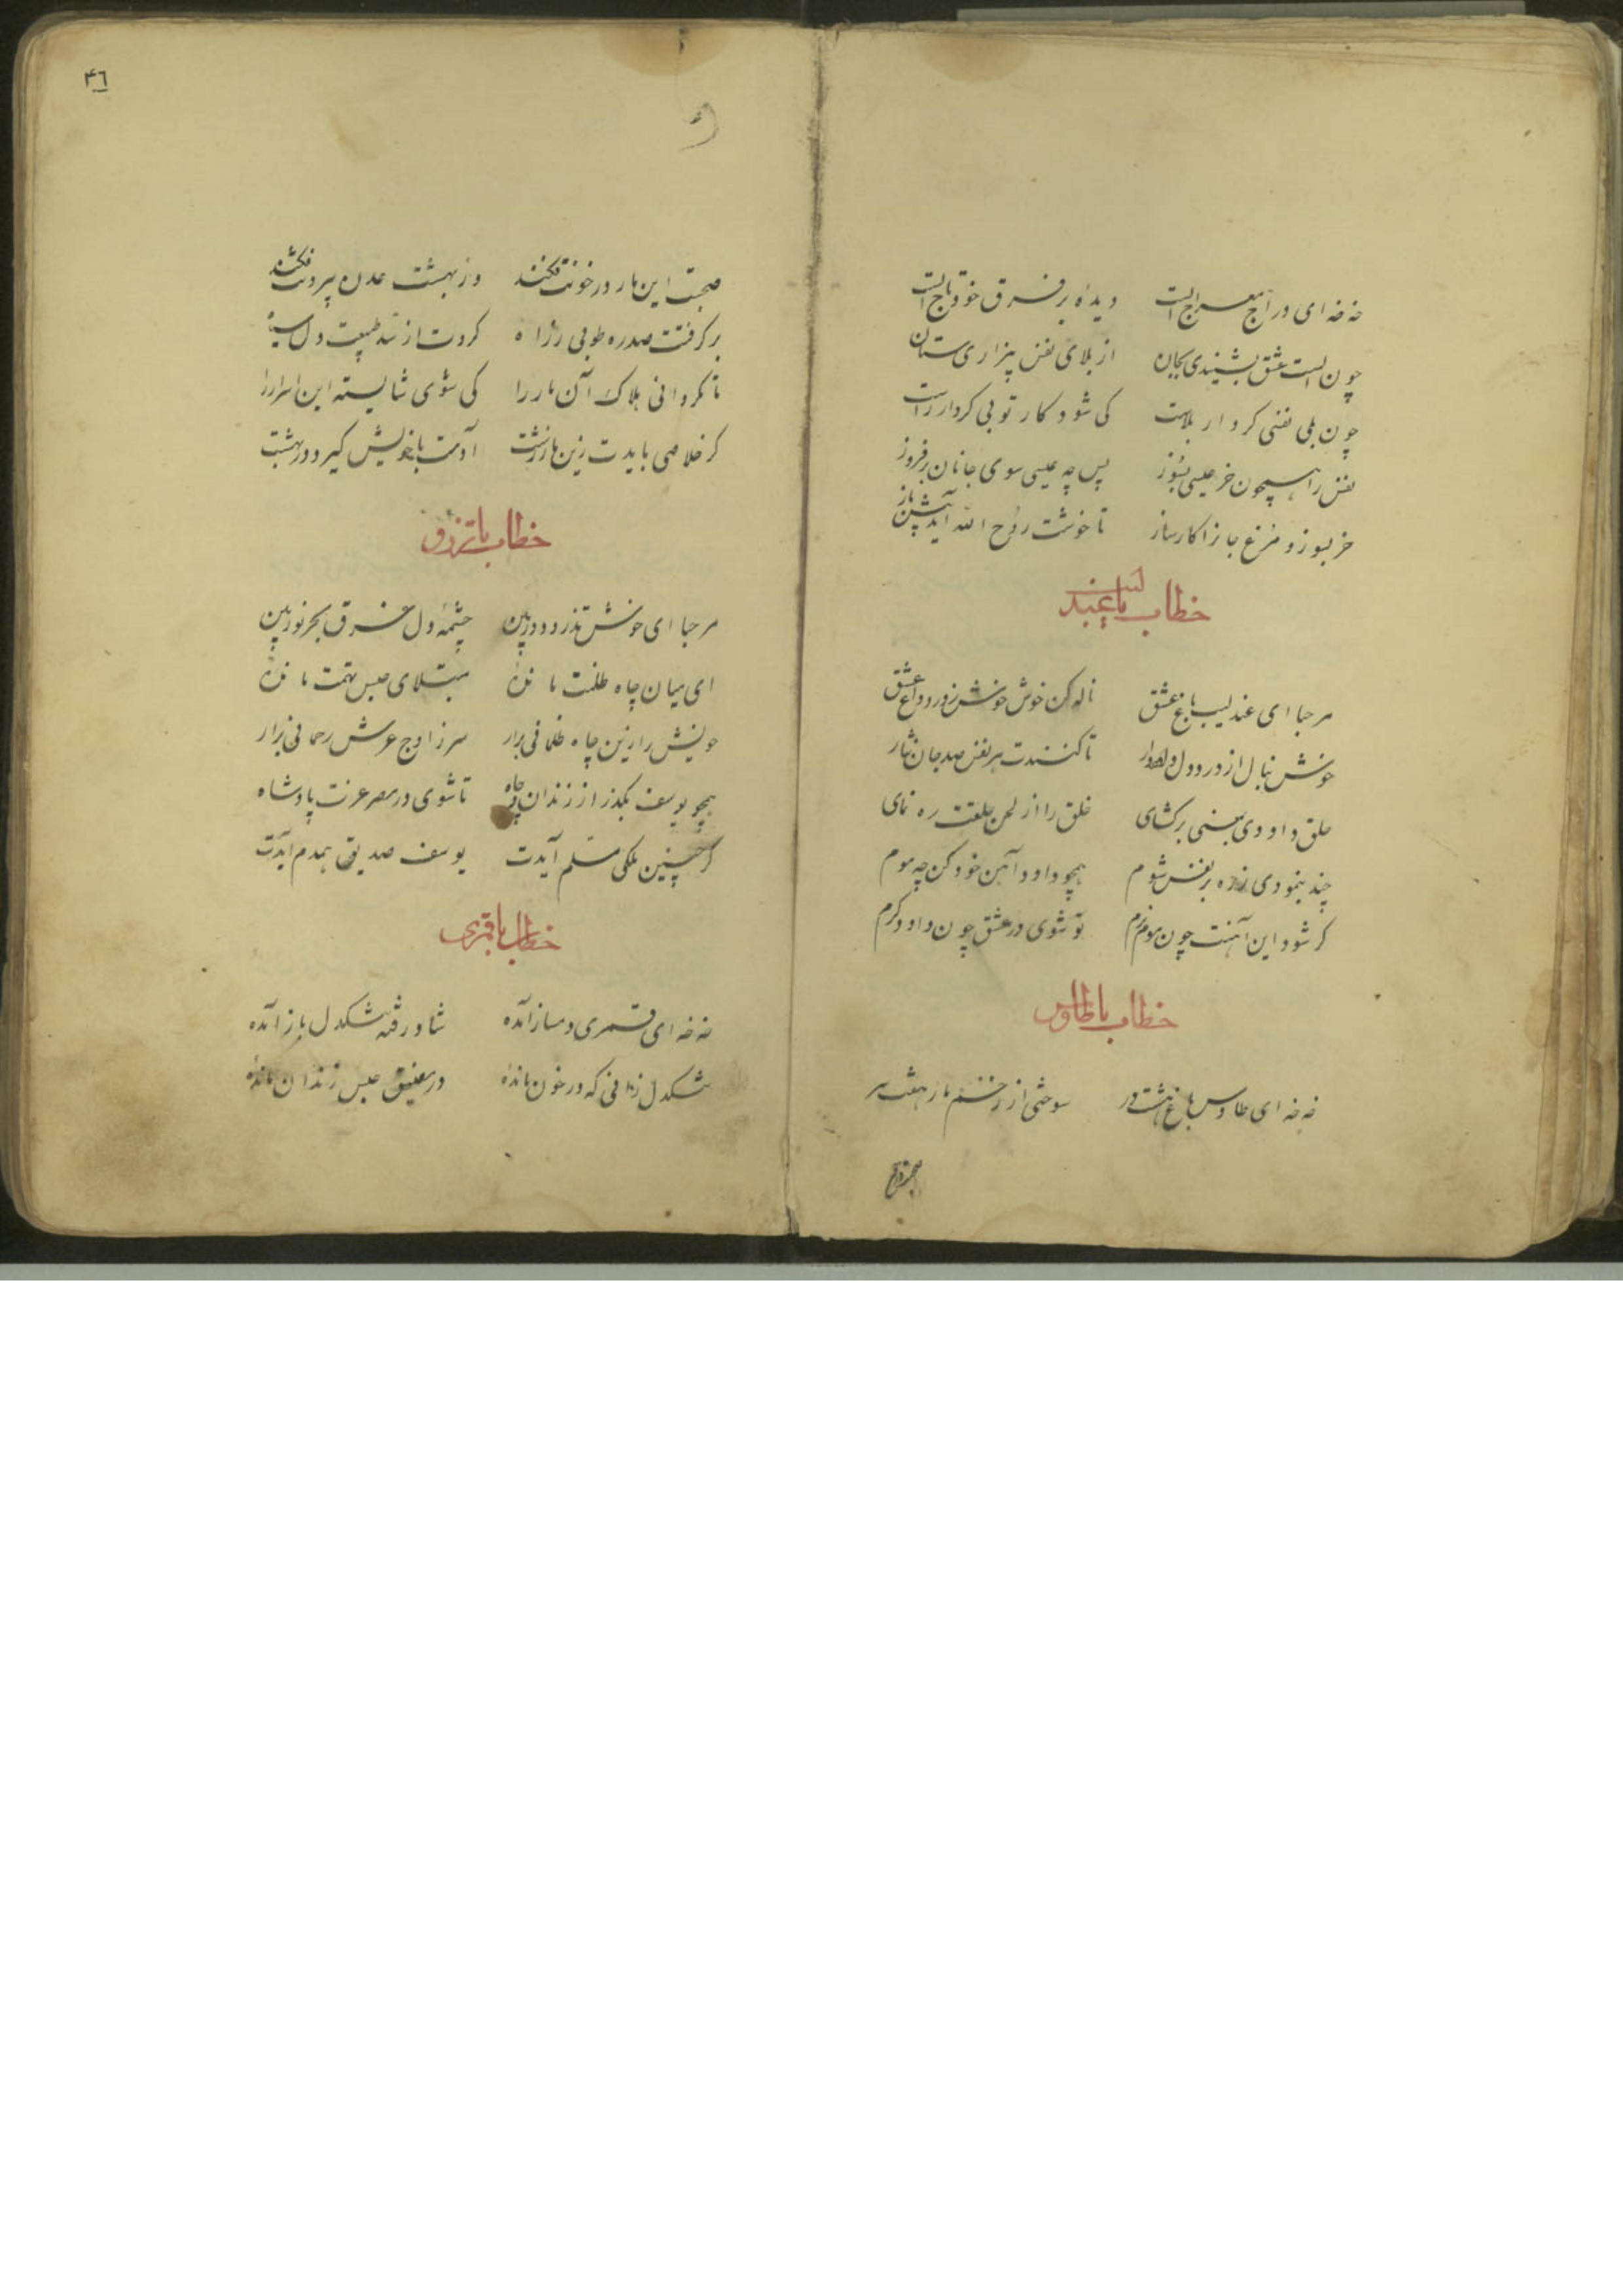 خه خه ای دراج معراج الست دیده بر فرق خود تاج الست
چون الست عشق بشنیدی بجان از بلای نفس بیزاری ستان
چون بلی نفس کرداب بلاست کی شود کار تو بی کردار راست
نفس را همچون خر عیسی بسوز پس چه عیسی سوی جانان برفروز
خر بسوز و مرغ جانرا کارساز تا خوشت روح الله آید پیش باز
خطاب با عندلیب
مرحبا ای عندلیب باغ عشق ناله کن خوش خوش ز درد و داغ عشق
خوش بنال از درد دل داودوار تا کنندت هر نفس صد جان نثار
حلق داودی بمعنی برکشای خلق را از لحن حلقت ره نمای
چند بنمودی زره بر نفس شوم همچو داود آهن خود کن چه موم
کر شود این آهنت چون موم نرم تو شوی در عشق چون داود کرم
خطاب با طاوس
خه خه ای طاوس باغ هشت در سوختی از زخم مار هفت سر
صحبت
۴۶
صحبت این مار در خونت فکند وز بهشت عدن بیرونت فکند
برکرفتت سدره طوبی ز راه کردت از سد طبیعت دل سیاه
تا نکردانی هلاک آن مار را کی شوی شایسته این اسرار را
کر خلاصی بایدت زین مار زشت آدمت با خویش کیرد در بهشت
خطاب با تزرو
مرحبا ای خوش تذرو دوربین چشمه دل غرق بحر نور بین
ای میان چاه ظلمت مانده مبتلای حبس تهمت مانده
خویش را زین چاه ظلمانی برار سر ز اوج عرش رحمانی برار
همچو یوسف بکذر از زندان چاه تا شوی در مصر عزت پادشاه
کر چنین ملکی مسلم آیدت یوسف صدیق همدم آیدت
خطاب با قمری
خه خه ای قمری دمساز آمده شاد رفته تنکدل باز آمده
تنکدل زانی که در خون مانده در مضیق حبس زندان مانده